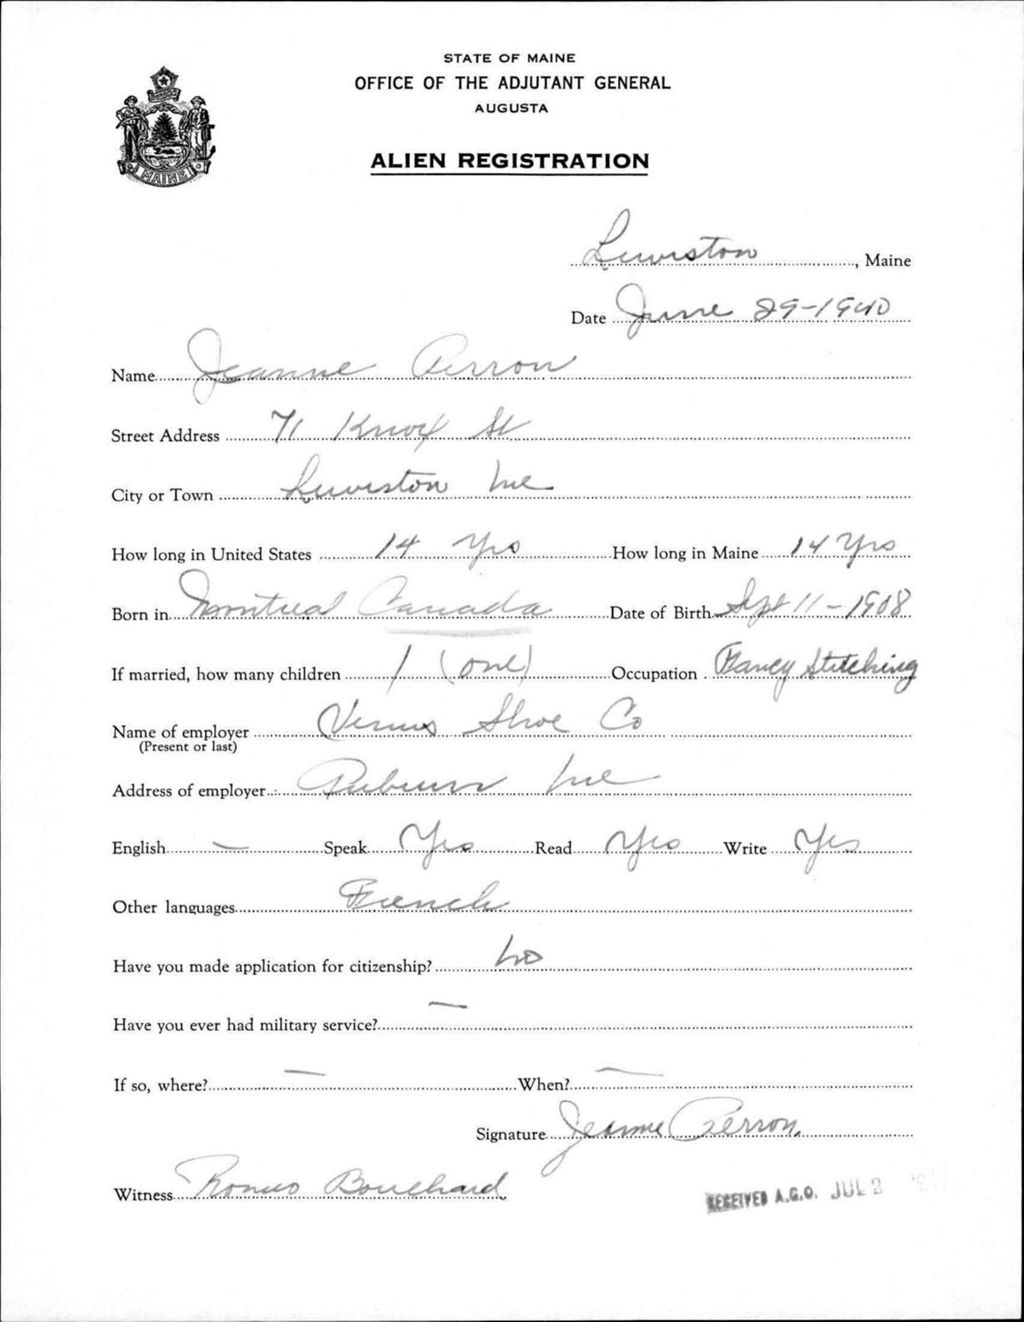 STATE OF MAINE
OFFICE OF THE ADJUTANT GENERAL
AUGUSTA
ALIEN REGISTRATION
MAINE
Lewiston, Maine
Date June 29-1940
Name Jeanne Perron
Street Address 71 Knox St
City or Town Lewiston Me
How long in United States 14 Yrs How long in Maine 14 Yrs
Born in Montreal Canada Date of Birth Sept 11-1908
If married, how many children 1 (one) Occupation Fancy Stitching
Name of employer Venus Shoe Co
(Present or last)
Address of employer Auburn Me
English — Speak Yes Read Yes Write Yes
Other languages French
Have you made application for citizenship? No
Have you ever had military service? —
If so, where? — When? —
Signature Jeanne Perron
Witness Romeo Bouchard
RECEIVED A.G.O. JUL 2